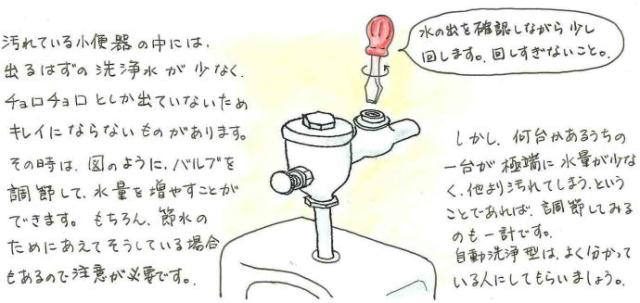 汚れている小便器の中には、
出るはずの洗浄水が少なく、
チョロチョロとしか出ていないため
キレイにならないものがあります。
その時は、図のように、バルブを
調節して、水量を増やすことが
できます。もちろん、節水の
ためにあえてそうしている場合
もあるので注意が必要です。
水の出を確認しながら少し
回します。回しすぎないこと。
しかし、何台かあるうちの
一台が極端に水量が少な
く、他より汚れてしまう、という
ことであれば、調節してみる
のも一計です。
自動洗浄型は、よく分かって
いる人にしてもらいましょう。